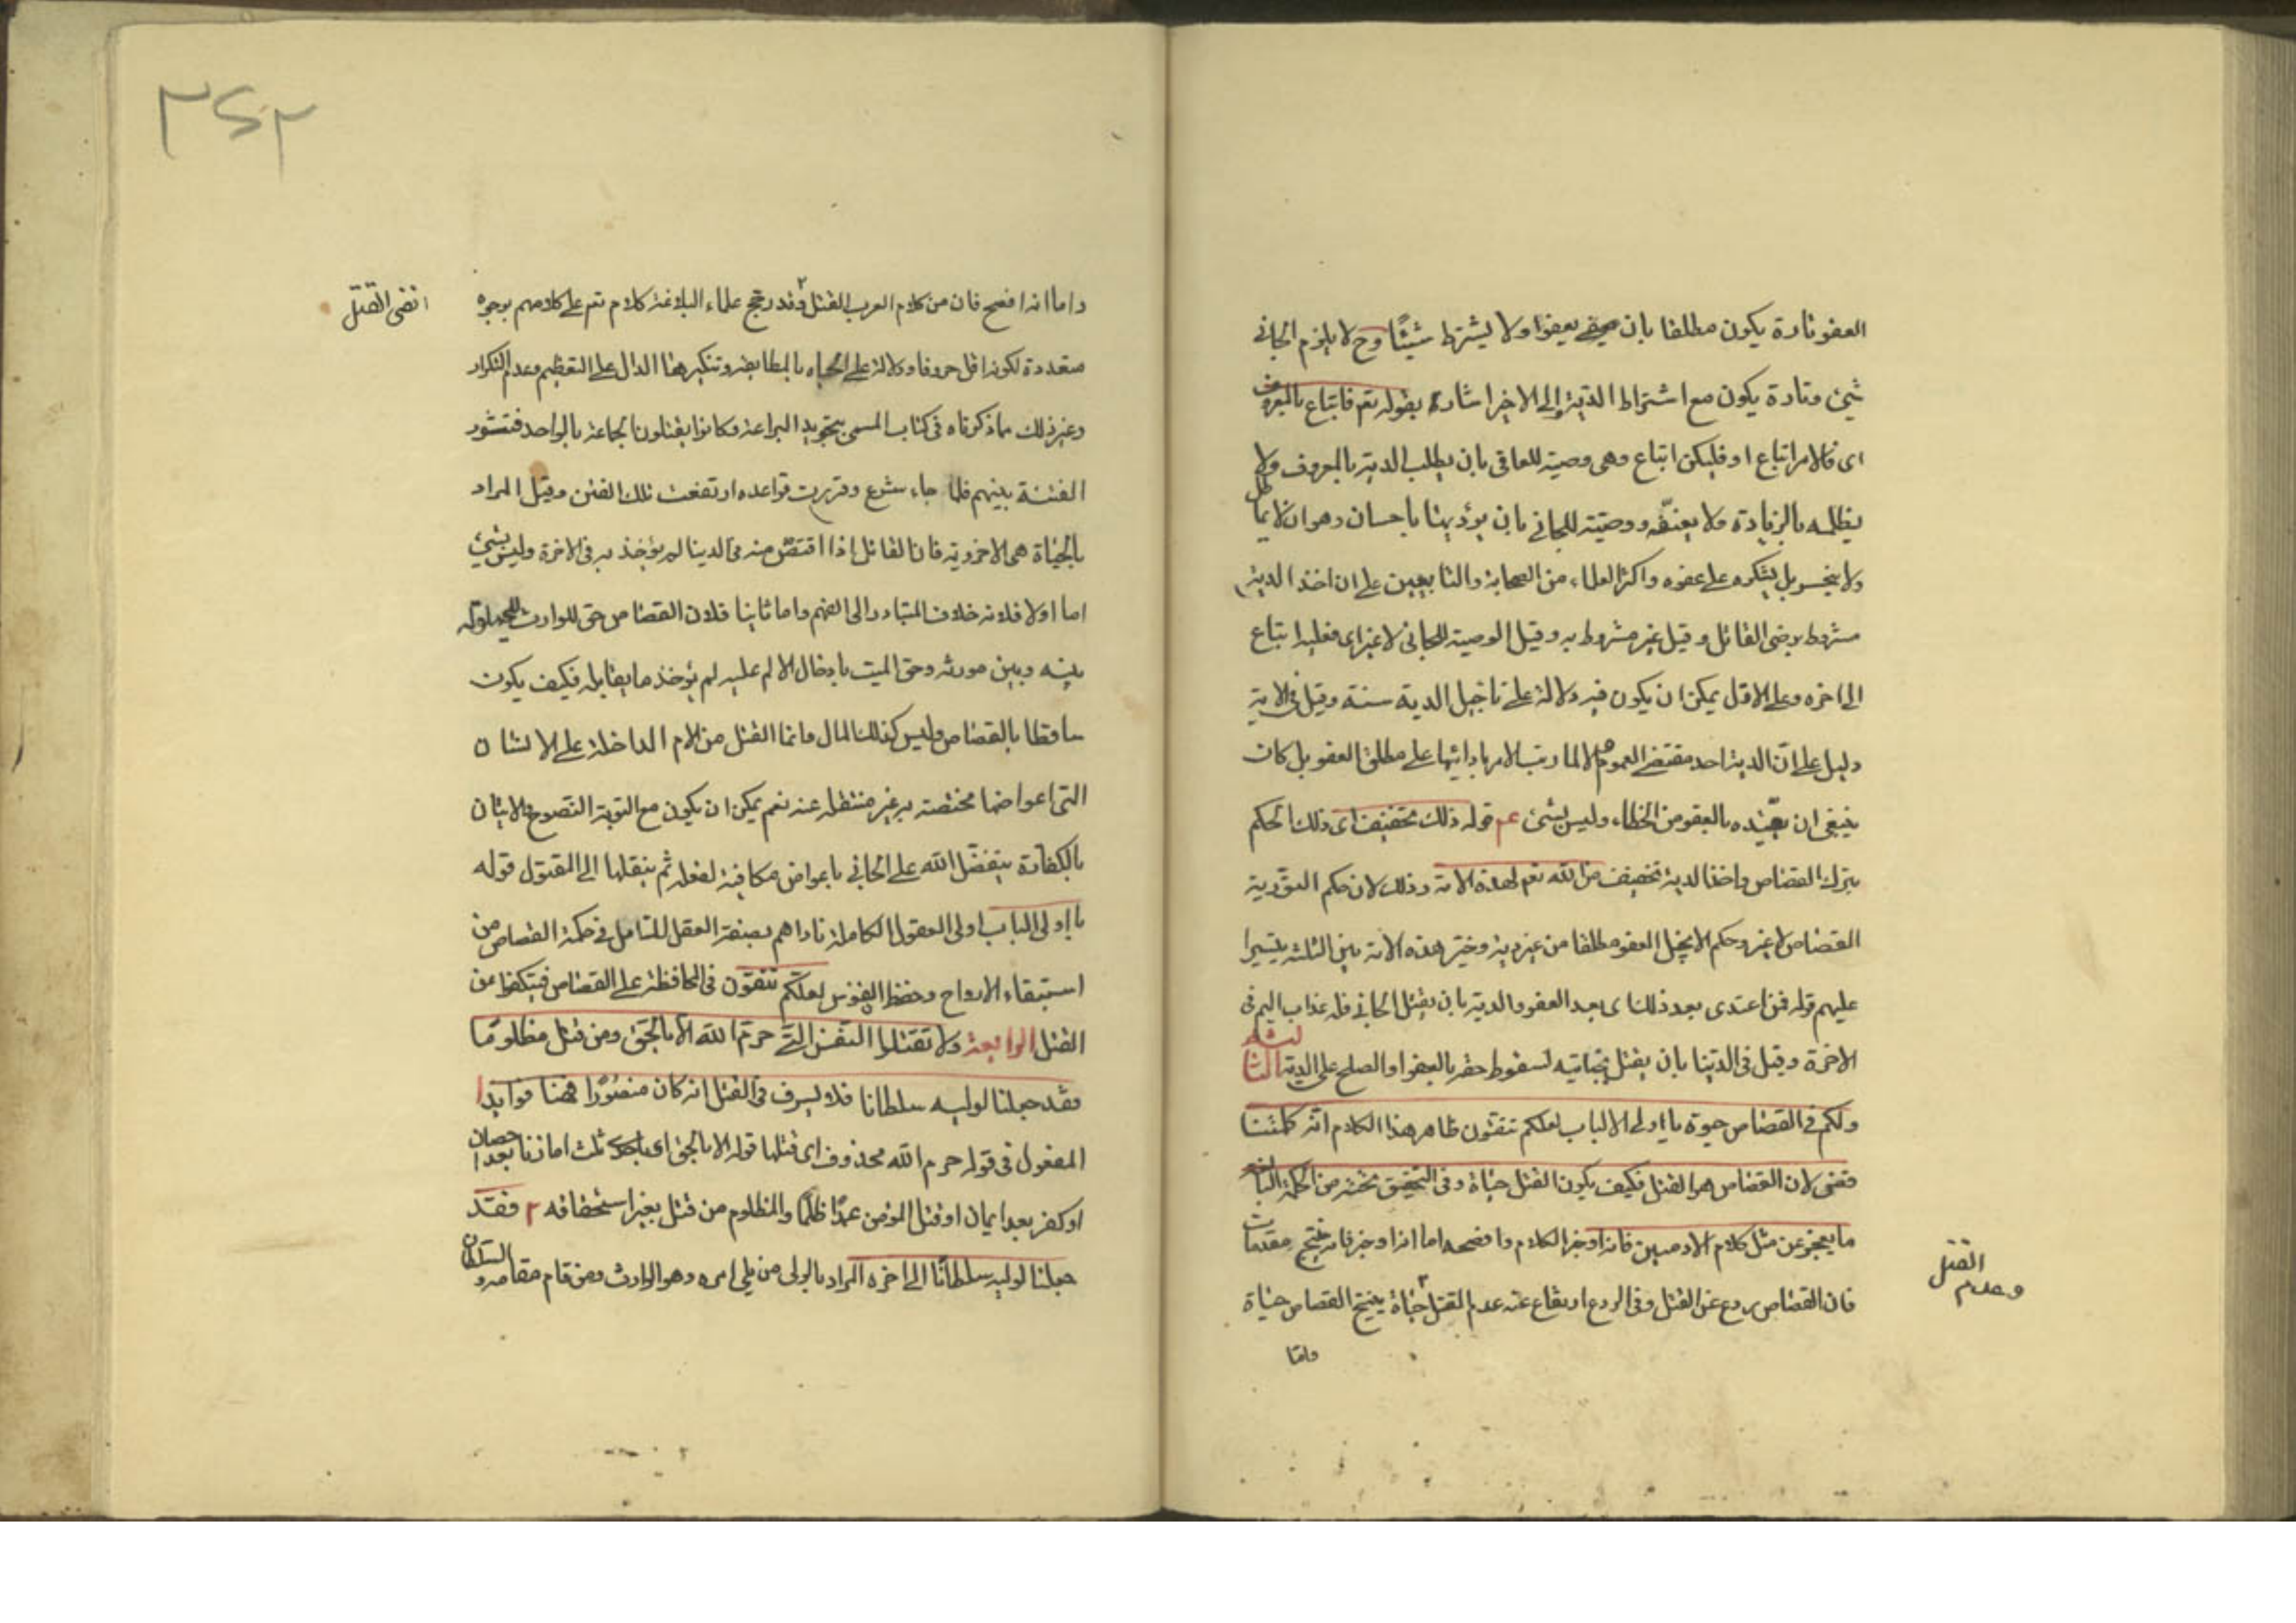 العفو تارة يكون مطلقا بان يعفوا ولا يشترط شيئًا وح لا يلزم الجاني
شيئ وتارة يكون مع اشتراط الدية والى الاخير اشارة بقوله تعم فاتباع بالمعروف
اى فالامر اتباع او فليكن اتباع وهى وصية للعافى بان يطلب الدية بالمعروف ولا
يظلمه بالزيادة ولا يعنّفه ووصيّته للجاني بان يؤديها باحسان وهو ان لا يماطل
ولا يبخس بل يشكره على عفوه واكثر العلماء من الصحابة والتابعين على ان اخذ الدية
مشروط برضى القاتل وقيل غير مشروط به وقيل الوصية للجانى لا غير اى فعليه اتباع
الى اخره وعلى الاول يمكن ان يكون فيه دلالة على تاجيل الدية سنة وقيل فى الاية
دليل على انّ الدية احد مقتضى العموم والا لما رتب الامر بادائها على مطلق العفو بل كان
ينبغى ان يقيّده بالعفو من الخطاء وليس بشئ عم قوله ذلك تخفيف اى ذلك الحكم
بترك القصاص واخذ الدية تخفيف من الله تعم لهذه الامة وذلك لان حكم التوّرية
القصاص لا غير وحكم الانجيل العفو مطلقا من غير دية وخيّر هذه الامة بين الثلثة يتسيرا
عليهم قوله فمن اعتدى بعد ذلك اى بعد العفو والدية بان يقتل الجانى فله عذاب اليم فى
الاخرة وقيل فى الدّنيا بان يقتل بجنايته لسقوط حقه بالعفو او الصلح على الدية الثالثة
ولكم فى القصاص حيوة يا اولى الالباب لعلكم تتقون ظاهر هذا الكلام انّه كلمتنا
قضى لان القصاص هو القتل فكيف يكون القتل حياة وفى التحقيق تحته من الحكمة البالغة
ما يعجز عن مثل كلام الادميين فانه اوجز الكلام وافصحه اما انه اوجز فانه ينتج مقدمات
فان القصاص ردع عن القتل وفى الردع ارتفاع عنه عدم القتل حياة ينتج القصاص حياة
القتل
وعدم
وامّا
٣٤٢
واما انه افصح فان من كلام العرب القتل وقد رجّح علماء البلاغة كلام تعم على كلامهم بوجوه
انفى القتل
متعددة لكونه اقل حروفا ودلالة على الحياه بالمطابقة وتنكيرها الدال على التعظيم وعدم التكرار
وغير ذلك مما ذكرناه فى كتاب المسمى بتجويد البراعة وكانوا يقتلون الجماعة بالواحد فتنشور
الفتنة بينهم فلما جاء شرع وقررت قواعده ارتفعت تلك الفتن وقيل المراد
بالحياة هى الاخروية فان القاتل اذا اقتصّ منه فى الدنيا لم يؤخذ به فى الاخرة وليس بشئ
اما اولا فلانه خلاف المتبادر الى الفهم واما ثانيا فلان القصاص حق للوارث للحيلولة
بينه وبين مورثه وحق الميت بادخال الالم عليه لم يؤخذ ما يقابله فكيف يكون
ساقطا بالقصاص وليس كذلك المال وانما القتل من الالام الداخلة على الانسان
التى اعواضها مختصة به غير منتقلة عنه نعم يمكن ان يكون مع التوبة النّصوح والاتيان
بالكفارة يتفضّل الله على الجانى باعواض مكافية لفعله ثم ينقلها الى المقتول قوله
يا اولى الالباب اولى العقول الكاملة ناداهم بصفة العقل للتامل فى حكمة القصاص من
استبقاء الارواح وحفظ النفوس لعلّكم تتّقون فى المحافظة على القصاص فيتكفوا عن
القتل الرابعة ولا تقتلوا النّفس الّتى حرّم الله الّا بالحقّ ومن قتل مظلومًا
فقد جعلنا لوليه سلطانا فلا يسرف فى القتل انه كان منصورًا هنا فوايد ا
المفعول فى قوله حرم الله محذوف اى قتلها قوله الا بالحق اى باحد ثلث اما زنا بعد احصان
او كفر بعد ايمان او قتل المؤمن عمدًا ظلمًا والمظلوم من قتل بغير استحقاقه ٢ فقد
جعلنا لوليه سلطانًا الى اخره المراد بالولى من يلى امره وهو الوارث ومن قام مقامه والسلطان